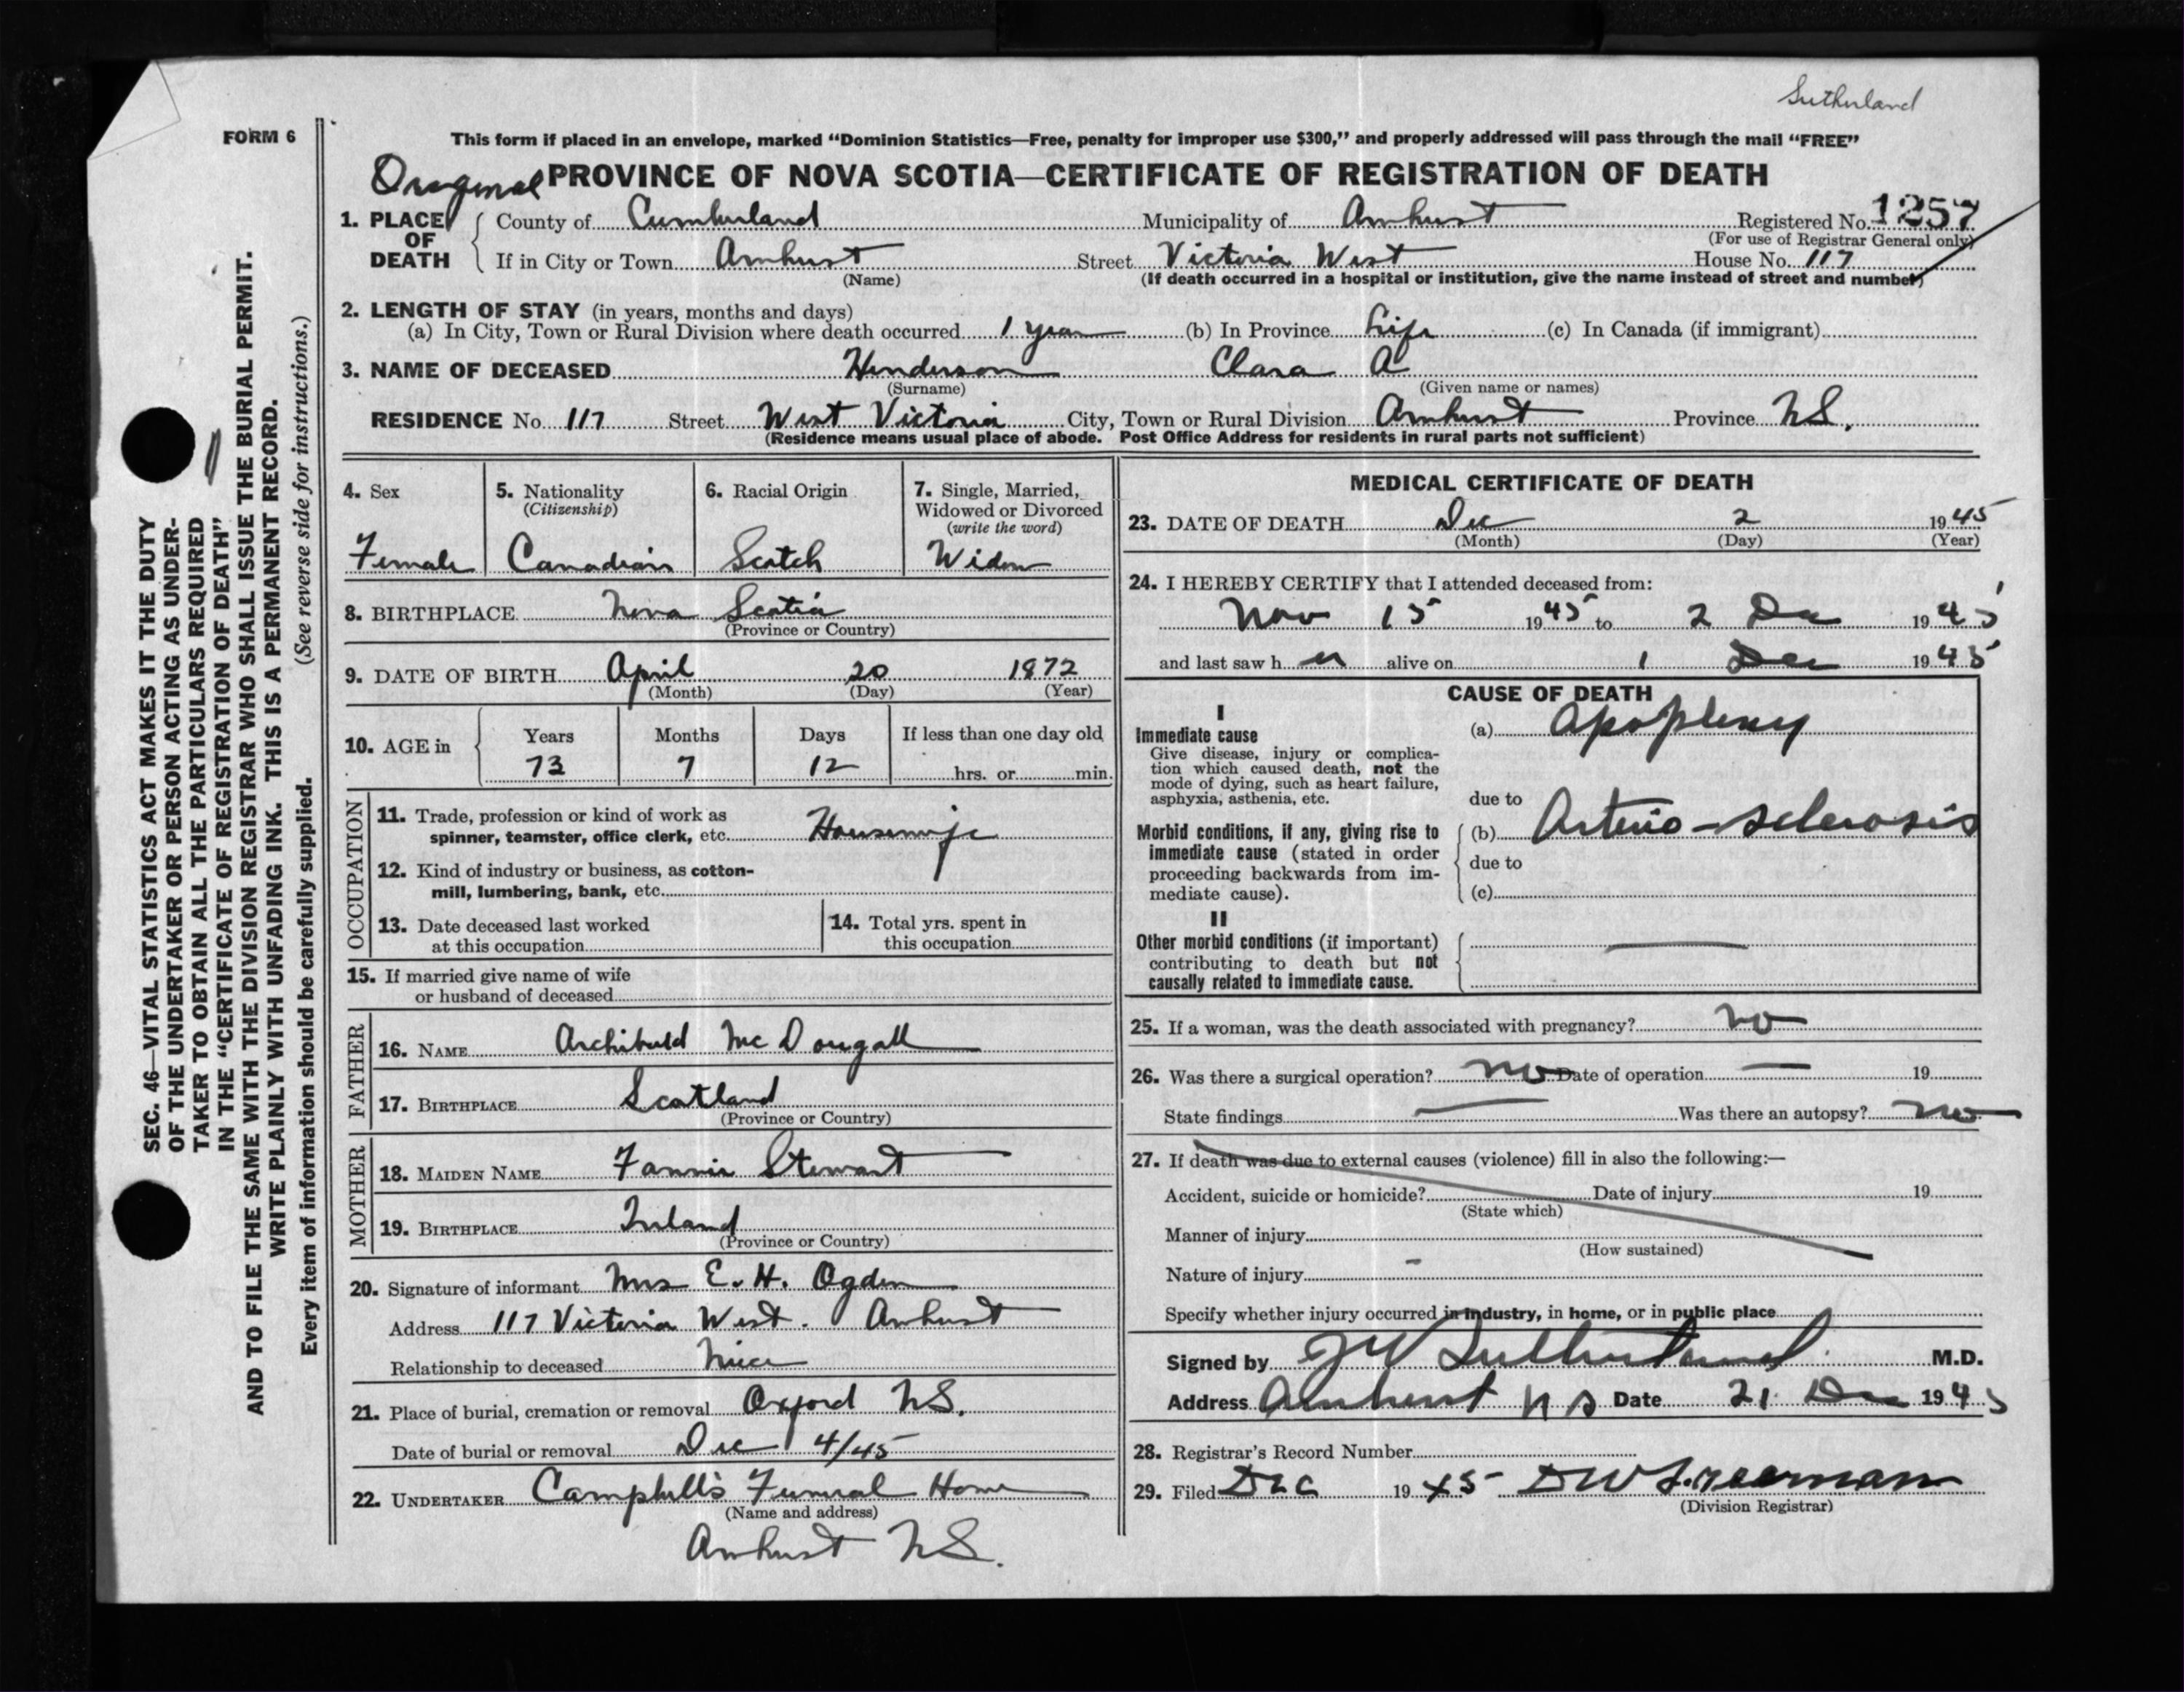 Sutherland
FORM 6
This form if placed in an envelope, marked “Dominion Statistics—Free, penalty for improper use $300,” and properly addressed will pass through the mail “FREE”
Original PROVINCE OF NOVA SCOTIA—CERTIFICATE OF REGISTRATION OF DEATH
1. PLACE OF DEATH County of Cumberland Municipality of Amherst Registered No. 1257
(For use of Registrar General only)
If in City or Town Amherst Street Victoria West House No. 117
(Name) (If death occurred in a hospital or institution, give the name instead of street and number)
2. LENGTH OF STAY (in years, months and days)
(a) In City, Town or Rural Division where death occurred 1 year (b) In Province Life (c) In Canada (if immigrant)
3. NAME OF DECEASED Henderson Clara A
(Surname) (Given name or names)
RESIDENCE No. 117 Street West Victoria City, Town or Rural Division Amherst Province N.S.
(Residence means usual place of abode. Post Office Address for residents in rural parts not sufficient)
4. Sex
Female
5. Nationality
(Citizenship)
Canadian
6. Racial Origin
Scotch
7. Single, Married,
Widowed or Divorced
(write the word)
Widow
8. BIRTHPLACE Nova Scotia
(Province or Country)
9. DATE OF BIRTH April 20 1872
(Month) (Day) (Year)
10. AGE in Years Months Days If less than one day old
73 7 12 hrs. or min.
OCCUPATION
11. Trade, profession or kind of work as
spinner, teamster, office clerk, etc. Housewife
12. Kind of industry or business, as cotton-
mill, lumbering, bank, etc.
13. Date deceased last worked
at this occupation
14. Total yrs. spent in
this occupation
15. If married give name of wife
or husband of deceased
FATHER
16. NAME Archibald McDougall
17. BIRTHPLACE Scotland
(Province or Country)
MOTHER
18. MAIDEN NAME Fannie Stewart
19. BIRTHPLACE Ireland
(Province or Country)
20. Signature of informant Mrs E. H. Ogden
Address 117 Victoria West. Amherst
Relationship to deceased Niece
21. Place of burial, cremation or removal Oxford N.S.
Date of burial or removal Dec 4/45
22. UNDERTAKER Campbell's Funeral Home
(Name and address)
Amherst N.S.
MEDICAL CERTIFICATE OF DEATH
23. DATE OF DEATH Dec 2 1945
(Month) (Day) (Year)
24. I HEREBY CERTIFY that I attended deceased from:
Nov 15 1945 to 2 Dec 1945
and last saw h er alive on 1 Dec 1945
CAUSE OF DEATH
I
Immediate cause
Give disease, injury or complica-
tion which caused death, not the
mode of dying, such as heart failure,
asphyxia, asthenia, etc.
(a) Apoplexy
due to
Morbid conditions, if any, giving rise to
immediate cause (stated in order
proceeding backwards from im-
mediate cause).
(b) Arterio-sclerosis
due to
(c)
II
Other morbid conditions (if important)
contributing to death but not
causally related to immediate cause.
25. If a woman, was the death associated with pregnancy? no
26. Was there a surgical operation? no Date of operation — 19
State findings — Was there an autopsy? no
27. If death was due to external causes (violence) fill in also the following:—
Accident, suicide or homicide? Date of injury 19
(State which)
Manner of injury
(How sustained)
Nature of injury
Specify whether injury occurred in industry, in home, or in public place
Signed by J W Sutherland M.D.
Address Amherst N S Date 21 Dec 1945
28. Registrar's Record Number
29. Filed Dec 1945 D W Freeman
(Division Registrar)
SEC. 46—VITAL STATISTICS ACT MAKES IT THE DUTY
OF THE UNDERTAKER OR PERSON ACTING AS UNDER-
TAKER TO OBTAIN ALL THE PARTICULARS REQUIRED
IN THE “CERTIFICATE OF REGISTRATION OF DEATH”
AND TO FILE THE SAME WITH THE DIVISION REGISTRAR WHO SHALL ISSUE THE BURIAL PERMIT.
WRITE PLAINLY WITH UNFADING INK. THIS IS A PERMANENT RECORD.
Every item of information should be carefully supplied. (See reverse side for instructions.)